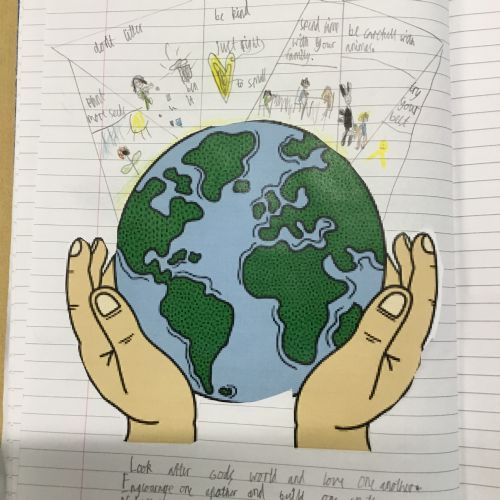 dont litter
be kind
spend time
with your
family.
be carefull with
animals.
just right
to small
plant
more seeds
try
your
best
Look after Gods world and love one another
Encourage one another and build one